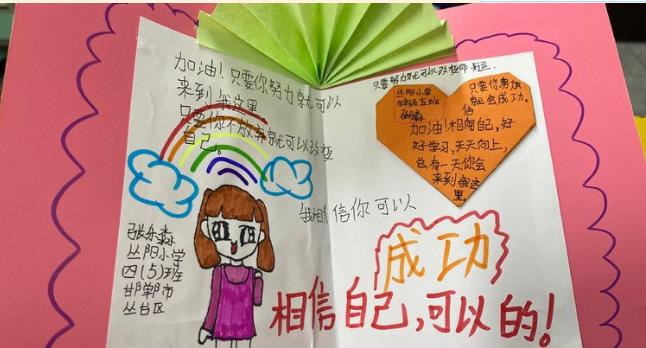 加油！只要你努力就可以
来到我这里
只要你不放弃就可以改变
自己。
我相信你可以
张
丛阳小学
四(5)班
邯郸市
丛台区
只要努力就可以改变命运.
丛阳小学
四年级五班
只要你勇
就会成功。
加油！相信自己，好
好学习，天天向上，
总有一天你会
来到我这
里。
成功
相信自己，可以的！